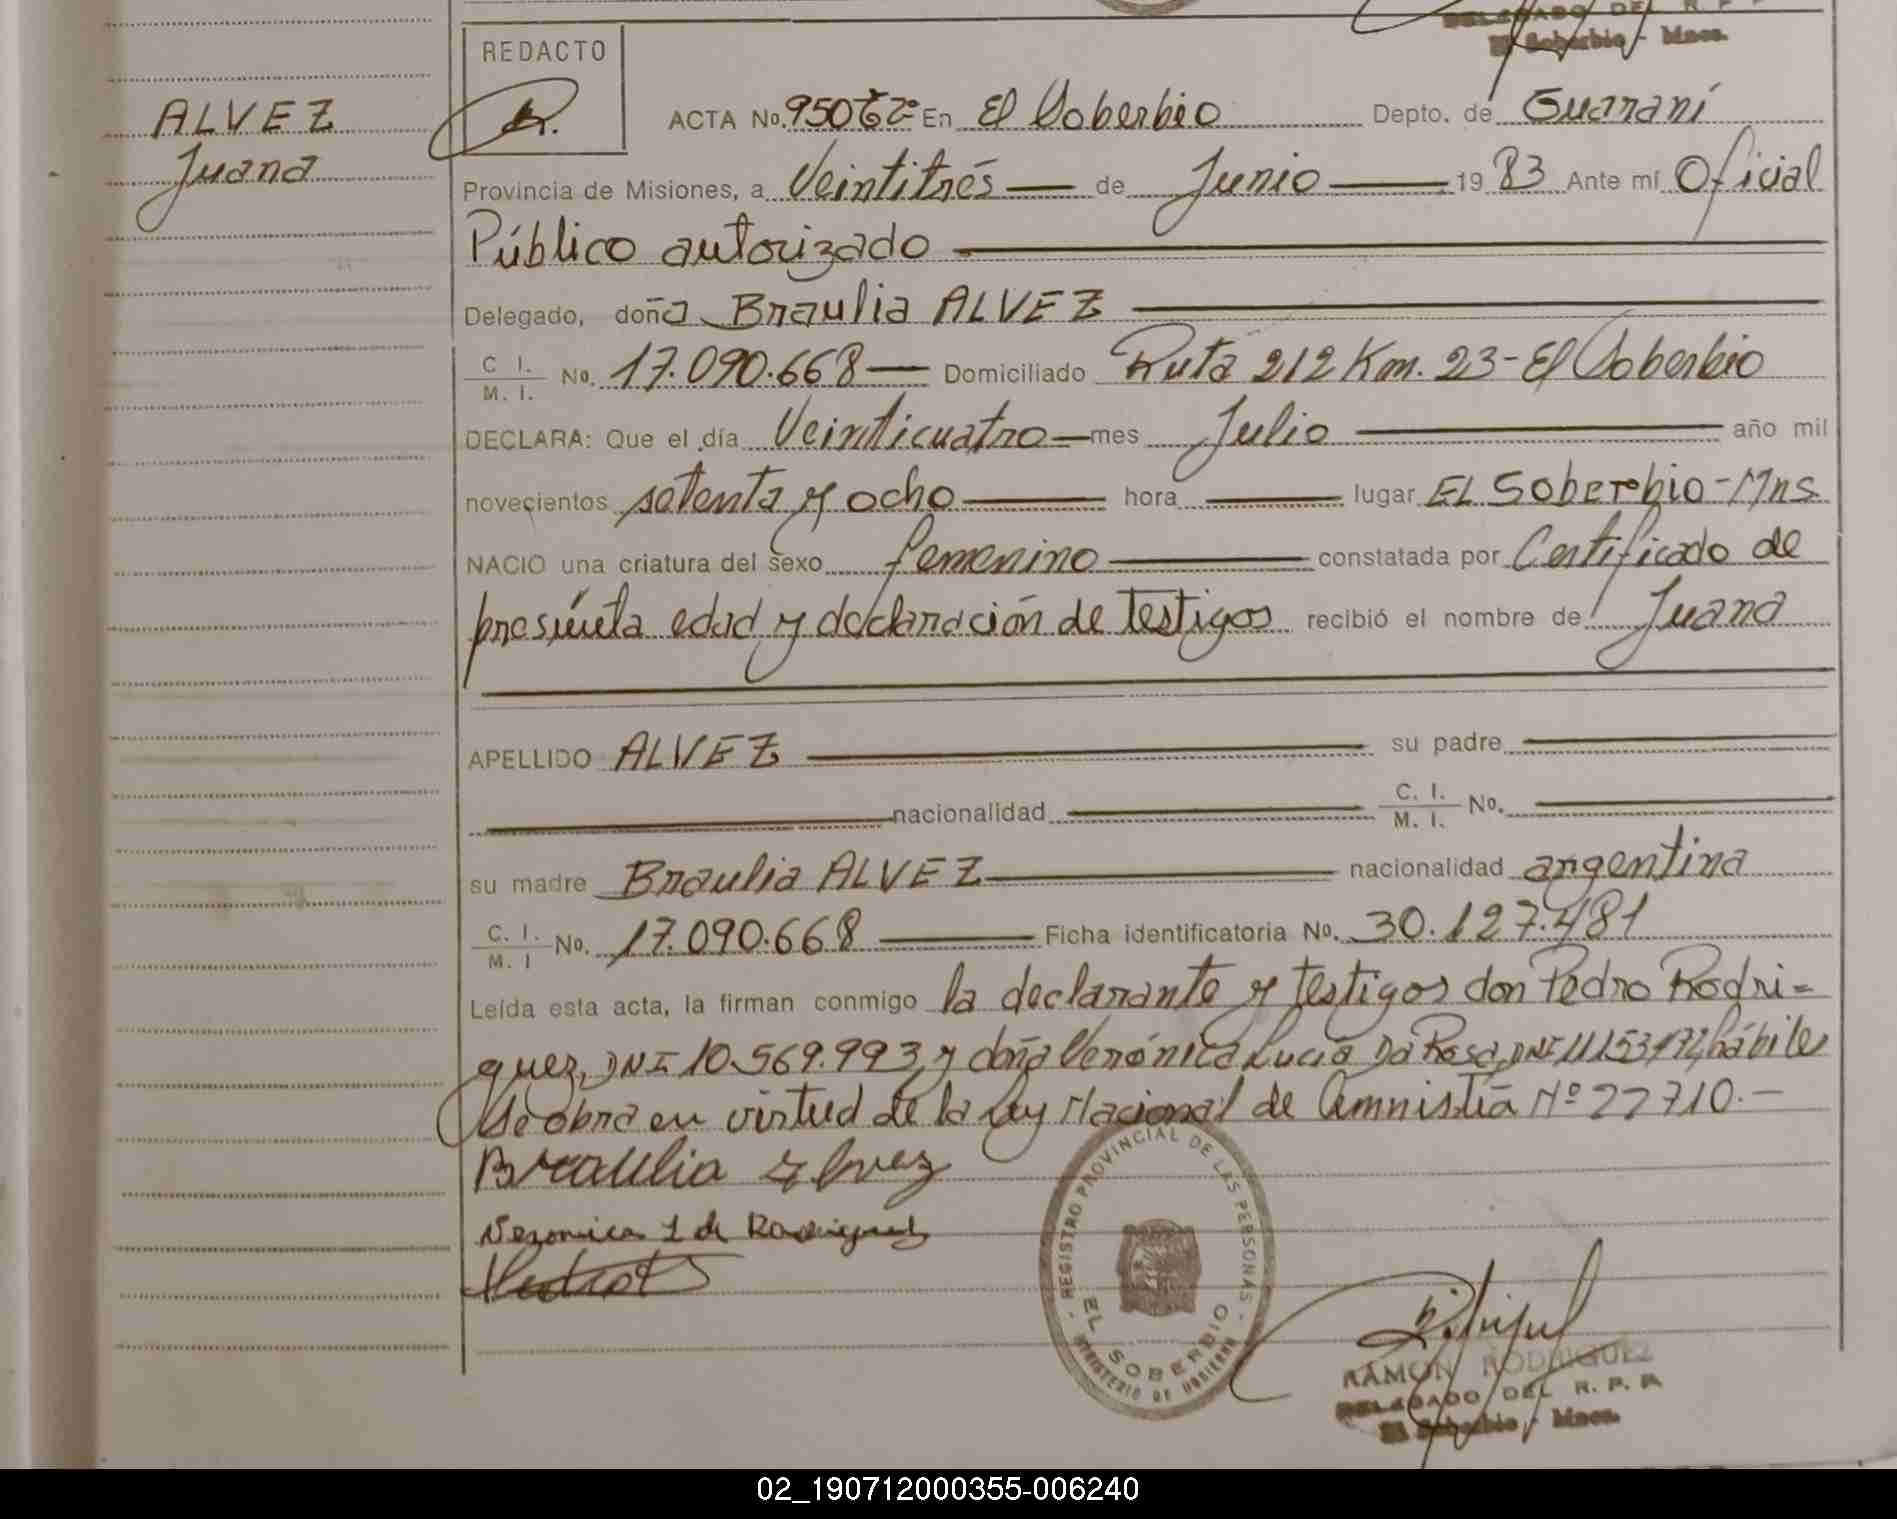 DELEGADO DEL R. P. P
El Soberbio - Mnes.
REDACTO
ALVEZ
Juana
ACTA No. 950 Tº 2º En El Soberbio Depto. de Guaraní
Provincia de Misiones, a Veintitrés de Junio 19 83 Ante mí Oficial
Público autorizado
Delegado, doña Braulia ALVEZ
C. I. / M. I. No. 17.090.668 Domiciliado Ruta 212 Km. 23 - El Soberbio
DECLARA: Que el día Veinticuatro mes Julio año mil
novecientos setenta y ocho hora lugar EL Soberbio - Mns
NACIO una criatura del sexo femenino constatada por Certificado de
presúnta edad y declaración de testigos recibió el nombre de Juana
APELLIDO ALVEZ su padre
nacionalidad C. I. / M. I. No.
su madre Braulia ALVEZ nacionalidad argentina
C. I. / M. I No. 17.090.668 Ficha identificatoria No. 30.127.481
Leída esta acta, la firman conmigo la declarante y testigos don Pedro Rodri=
guez, DNI 10.569.993, y doña Verónica Lucia Da Rosa, DNI hábiles
Se obra en virtud de la Ley Nacional de Amnistía Nº 22710.-
Braulia Alvez
Veronica L de Rodriguez
REGISTRO PROVINCIAL DE LAS PERSONAS
EL SOBERBIO
MINISTERIO DE GOBIERNO
RAMON RODRIGUEZ
DELEGADO DEL R. P. P.
El Soberbio - Mnes.
02_190712000355-006240